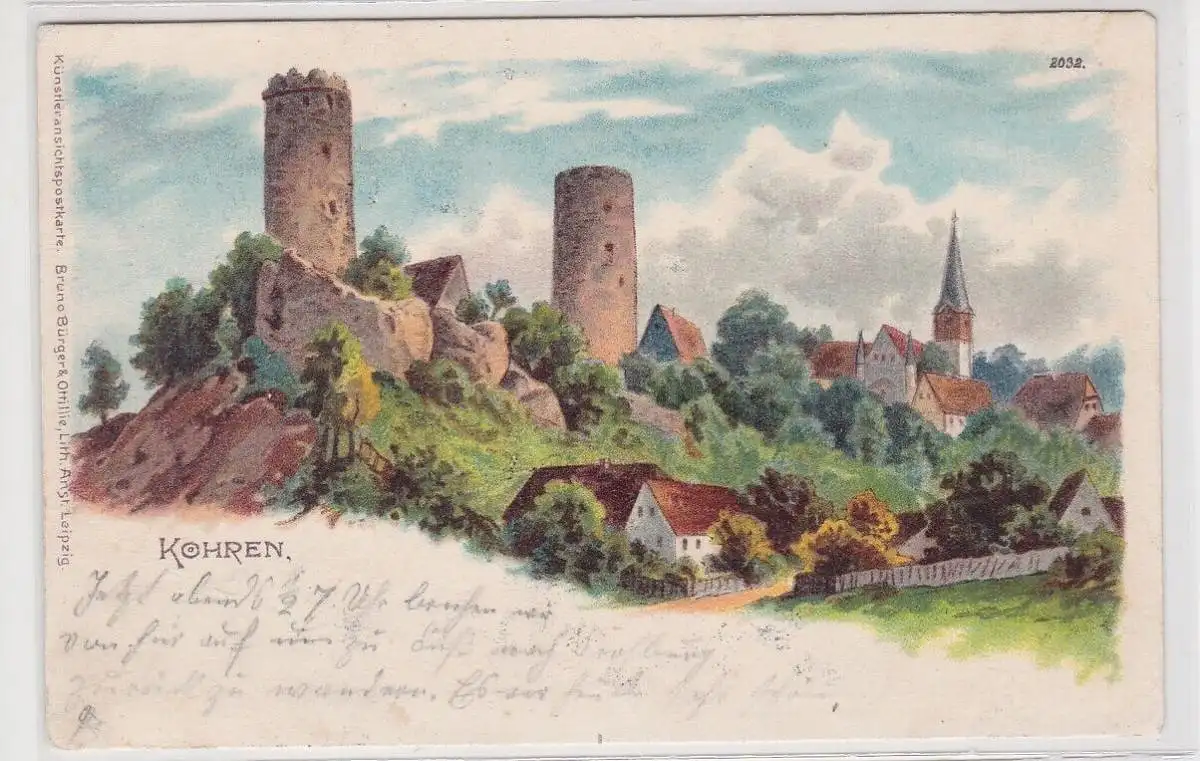 2032.
Künstleransichtspostkarte. Bruno Bürger & Ottillie, Lith. Anst. Leipzig.
KOHREN.
Jetzt abends ½ 7 Uhr brechen wir
von hier auf um zu Fuß nach
zurück zu wandern. Es